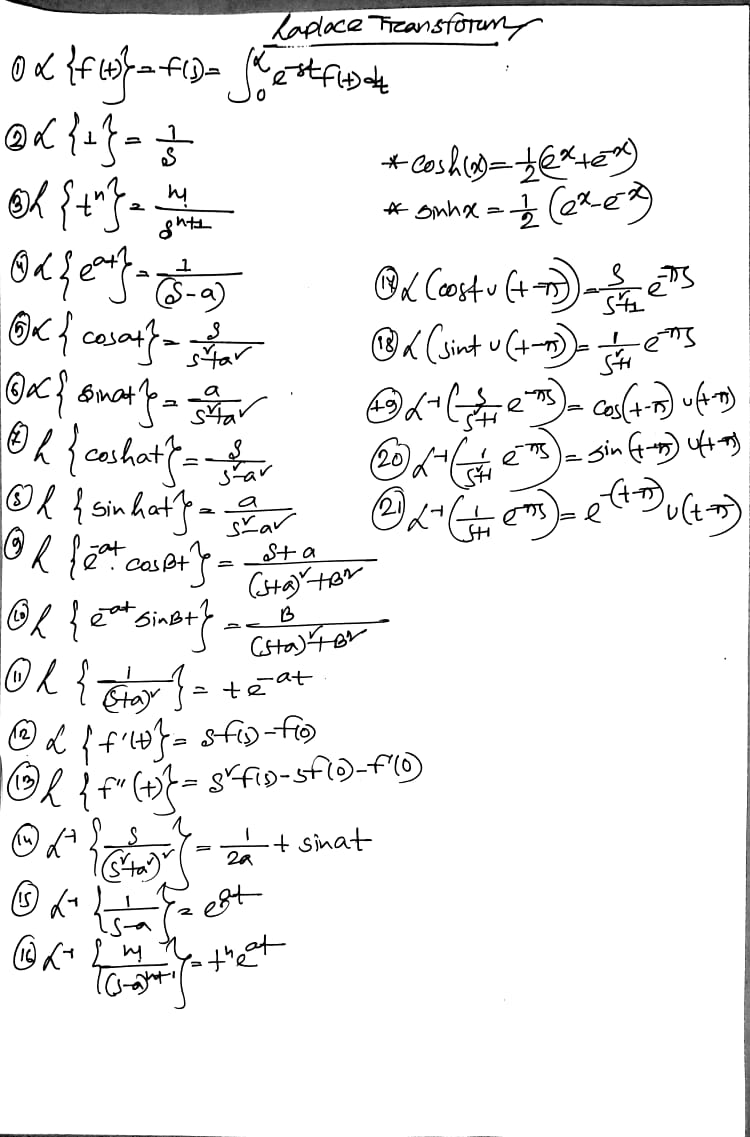 Laplace Transform
① L {f(t)} = f(s) = ∫₀^∝ e^-st f(t) dt
② L {1} = 1/s
③ L {t^n} = n!/s^n+1
④ L {e^at} = 1/(s-a)
⑤ L { cosat} = s/s²+a²
⑥ L { sinat} = a/s²+a²
⑦ L { coshat} = s/s²-a²
⑧ L { sinhat} = a/s²-a²
⑨ L {e^-at. cosBt} = s+a/(s+a)²+B²
⑩ L { e^-at sinBt} = B/(s+a)²+B²
⑪ L { 1/(s+a)² } = te^-at
⑫ L {f'(t)} = sf(s)-f(0)
⑬ L {f''(t)} = s²f(s)-sf(0)-f'(0)
⑭ L^-1 { s/(s²+a²)² } = 1/2a t sinat
⑮ L^-1 { 1/s-a } = e^at
⑯ L^-1 { n!/(s-a)^n+1 } = t^n e^at
* cosh(x) = 1/2 (e^x+e^-x)
* sinhx = 1/2 (e^x-e^-x)
⑰ L (cost u(t-π)) = s/s²+1 e^-πs
⑱ L (sint u(t-π)) = 1/s²+1 e^-πs
⑲ L^-1 (s/s²+1 e^-πs) = cos(t-π) u(t-π)
⑳ L^-1 (1/s²+1 e^-πs) = sin(t-π) u(t-π)
㉑ L^-1 (1/s+1 e^-πs) = e^-(t-π) u(t-π)